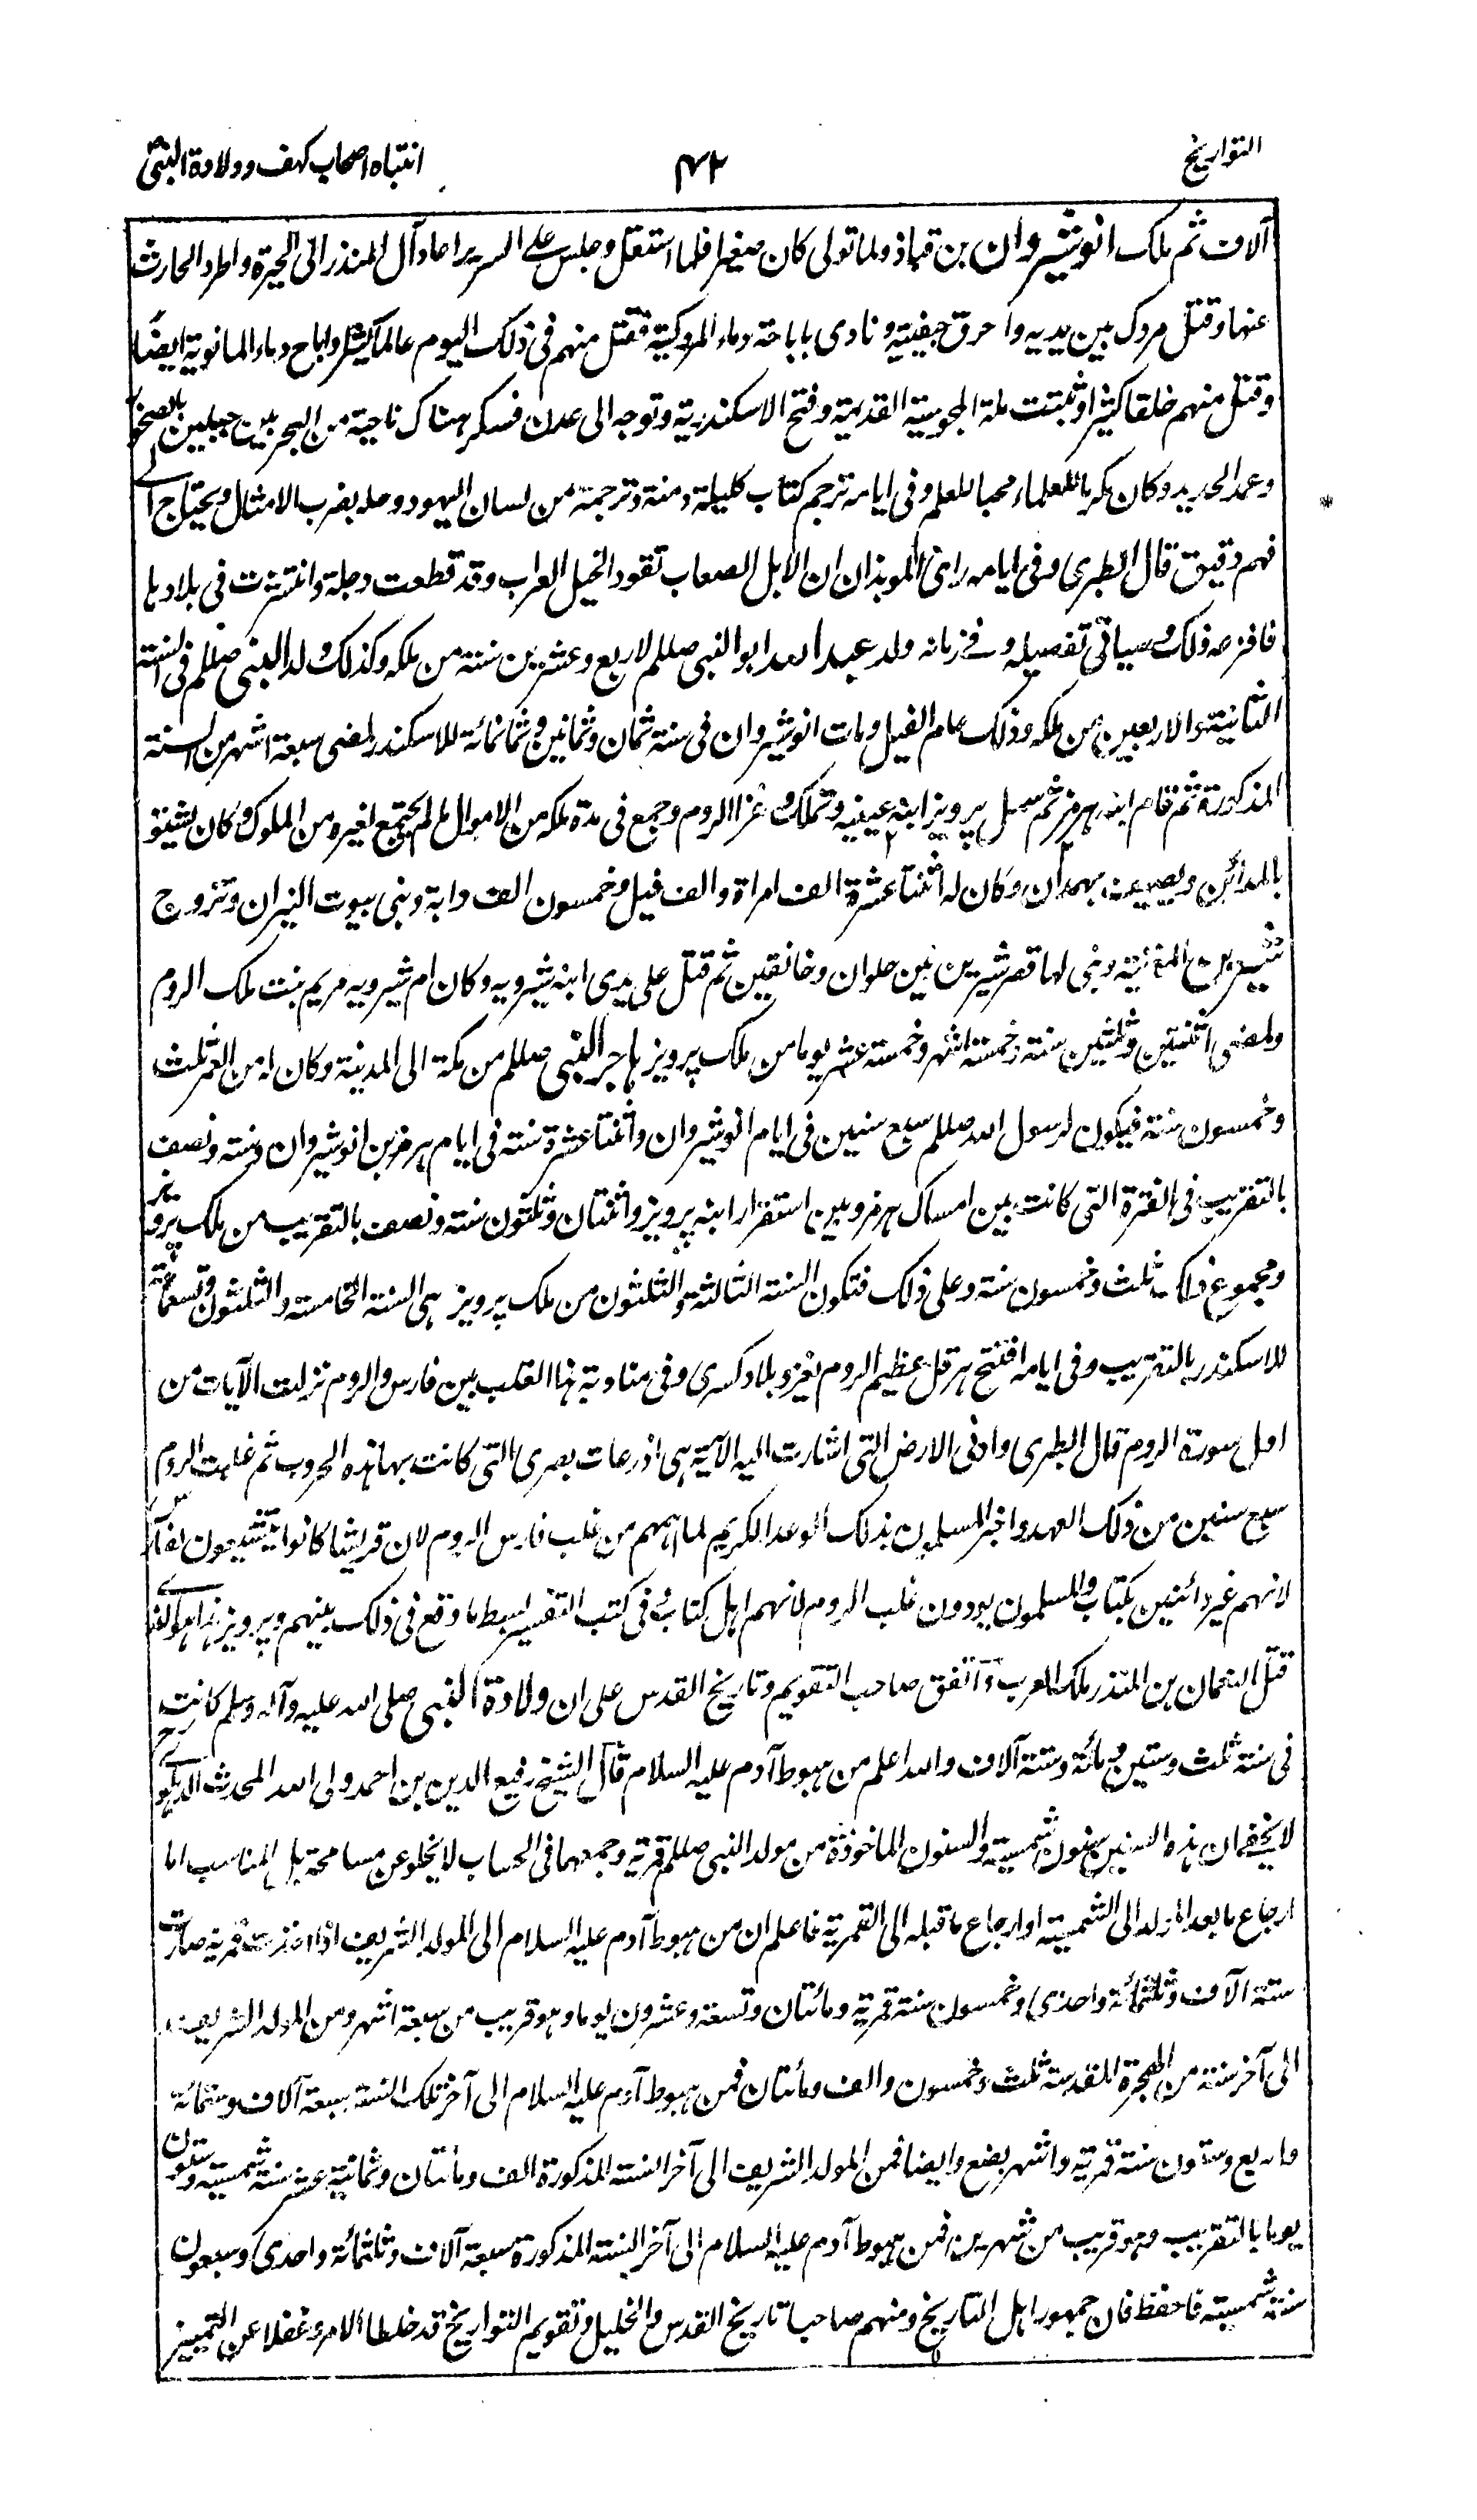 التواريخ ٤٢ انتباه اصحاب كهف وولادة النبيؐ
آلاف ثم ملك انوشيروان بن قباذ ولما تولى كان صغيرا فلما استقل وجلس على السرير اعاد آل المنذر الى الحيرة واطرد الحارث
عنها وقتل مزدك بين يديه واحرق جيفته ونادى باباحة دماء المزدكية فقتل منهم في ذلك اليوم عالما كثيرا واباح دماء المانوية ايضا
وقتل منهم خلقا كثيرا وثبتت ملة المجوسية القديمة وفتح الاسكندرية وتوجه الى عدن فسكر هناك ناحية من البحر بين جبلين بالصخر
وعمد الحديد وكان مكرما للعلماء محبا للعلم وفى ايامه ترجم كتاب كليلة ودمنة وترجمة من لسان اليهود وحله بضرب الامثال ويحتاج الى
فهم دقيق قال الطبرى وفى ايامه راى الموبذان ان الابل الصعاب تقود الخيل العراب وقد قطعت دجلة وانتشرت فى بلادها
فافزعه ذلك وسياتى تفصيله وفى زمانه ولد عبد الله ابو النبى صللم لاربع وعشرين سنة من ملكه وكذلك ولد النبى صللم فى السنة
الثانية والاربعين من ملكه وذلك عام الفيل ومات انوشيروان فى سنة ثمان وثمانين وثمانمائة للاسكندر لمضى سبعة اشهر من السنة
المذكورة ثم قام ابنه هرمز ثم سمل پرويز ابنه عينيه وتملك وغزا الروم وجمع فى مدة ملكه من الاموال ما لم يجتمع لغيره من الملوك وكان يشتو
بالمدائن ويصيف بهمدان وكان له اثنتا عشرة الف امراة والف فيل وخمسون الف دابة وبنى بيوت النيران وتزوج
شيرين المغنية وبنى لها قصر شيرين بين حلوان وخانقين ثم قتل على يدى ابنه شيرويه وكان ام شيرويه مريم بنت ملك الروم
ولمضى اثنتين وثلثين سنة وخمسة اشهر وخمسة عشر يوما من ملك پرويز هاجر النبى صللم من مكة الى المدينة وكان له من العمر ثلث
وخمسون سنة فيكون لرسول الله صللم سبع سنين فى ايام انوشيروان واثنتا عشرة سنة فى ايام هرمز بن انوشيروان وسنة ونصف
بالتقريب فى الفترة التى كانت بين امساك هرمز وبين استقرار ابنه پرويز واثنتان وثلثون سنة ونصف بالتقريب من ملك پرويز
ومجموع ذلك ثلث وخمسون سنة وعلى ذلك فتكون السنة الثالثة والثلثون من ملك پرويز هى السنة الخامسة والثلثون وتسعمائة
للاسكندر بالتقريب وفى ايامه افتتح هرقل عظيم الروم بغزو بلاد كسرى وفى مناوبة هذا القلب بين فارس والروم نزلت الآيات من
اول سورة الروم قال الطبرى وادنى الارض التى اشارت اليه الآية هى اذرعات بصرى التى كانت بها هذه الحروب ثم غلبت الروم
سبع سنين من ذلك العهد واخبر المسلمون بذلك الوعد الكريم لما اهمهم من غلب فارس الروم لان قريشا كانوا يتشيعون لفارس
لانهم غير دائنين بكتاب والمسلمون يودون غلب الروم لانهم اهل كتاب وفى كتب التفسير بسط ما وقع فى ذلك بينهم وپرويز هذا هو الذى
قتل النعمان بن المنذر ملك العرب واتفق صاحب التقويم وتاريخ القدس على ان ولادة النبى صلى الله عليه وآله وسلم كانت
فى سنة ثلث وستين ومائة وستة آلاف والله اعلم من هبوط آدم عليه السلام قال الشيخ رفيع الدين بن احمد ولى الله المحدث الدهلوى رح
لا يخفى ان هذه السنين سنون شمسية والسنون الماخوذة من مولد النبى صللم قمرية وجمعهما فى الحساب لا يخلو عن مسامحة بل المناسب اما
ارجاع ما بعد المولد الى الشمسية او ارجاع ما قبله الى القمرية فاعلم ان من هبوط آدم عليه السلام الى المولد الشريف اذا اخذت قمرية صارت
ستة آلاف وثلثمائة واحدى وخمسون سنة قمرية ومائتان وتسعة وعشرون يوما وهو قريب من سبعة اشهر ومن المولد الشريف
الى آخر سنة من الهجرة المقدسة ثلث وخمسون والف ومائتان فمن هبوط آدم عليه السلام الى آخر تلك السنة سبعة آلاف وستمائة
واربع وستون سنة قمرية واشهر بضع وايضا فمن المولد الشريف الى آخر السنة المذكورة الف ومائتان وثمانية عشر سنة شمسية وستون
يوما بالتقريب وهو قريب من شهرين فمن هبوط آدم عليه السلام الى آخر السنة المذكورة سبعة آلاف وثلثمائة واحدى وسبعون
سنة شمسية فاحفظ فان جمهور اهل التاريخ ومنهم صاحبا تاريخ القدس والخليل وتقويم التواريخ قد خلطا الامر وغفلا عن التمييز